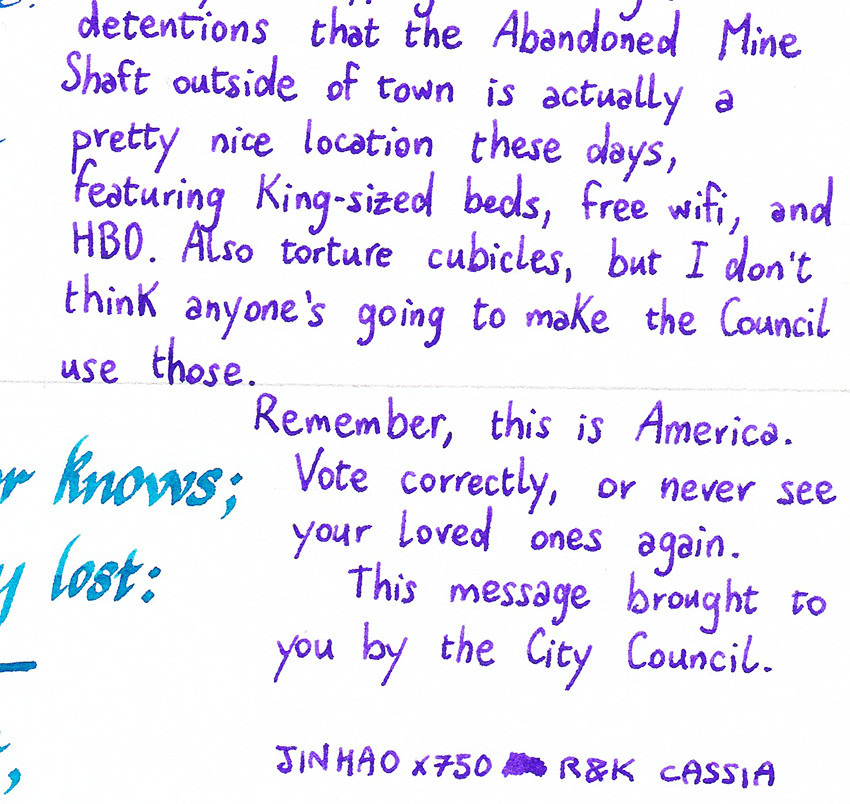 detentions that the Abandoned Mine
Shaft outside of town is actually a
pretty nice location these days,
featuring King-sized beds, free wifi, and
HBO. Also torture cubicles, but I don't
think anyone's going to make the Council
use those.
Remember, this is America.
Vote correctly, or never see
your loved ones again.
This message brought to
you by the City Council.
JINHAO x750 R&K CASSIA
knows;
lost: